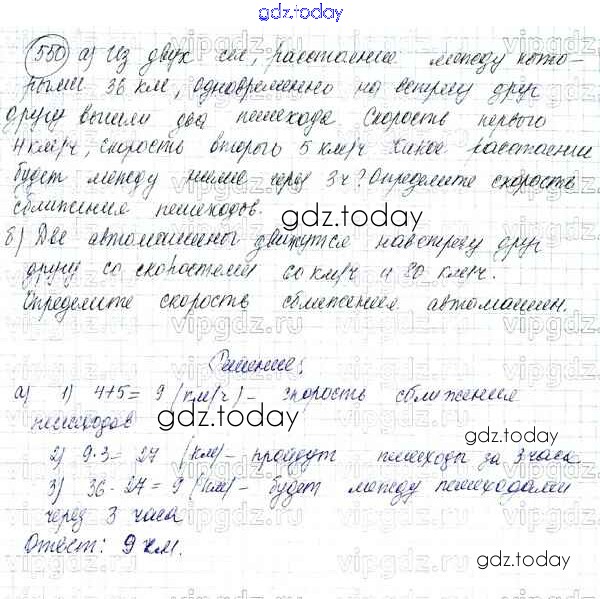 gdz.today
550 а) Из двух сел, расстояние между кото-
рыми 36 км, одновременно на встречу друг
другу вышли два пешехода. Скорость первого
4 км/ч, скорость второго 5 км/ч. Какое расстояние
будет между ними через 3 ч? Определите скорость
сближения пешеходов.
gdz.today
б) Две автомашины движутся навстречу друг
другу со скоростями 60 км/ч и 80 км/ч.
Определите скорость сближения автомашин.
Решение:
а) 1) 4+5= 9 (км/ч) - скорость сближения
пешеходов
gdz.today
2) 9·3= 27 (км) - пройдут пешеходы за 3 часа
3) 36-27=9 (км) - будет между пешеходами
через 3 часа
Ответ: 9 км.
gdz.today